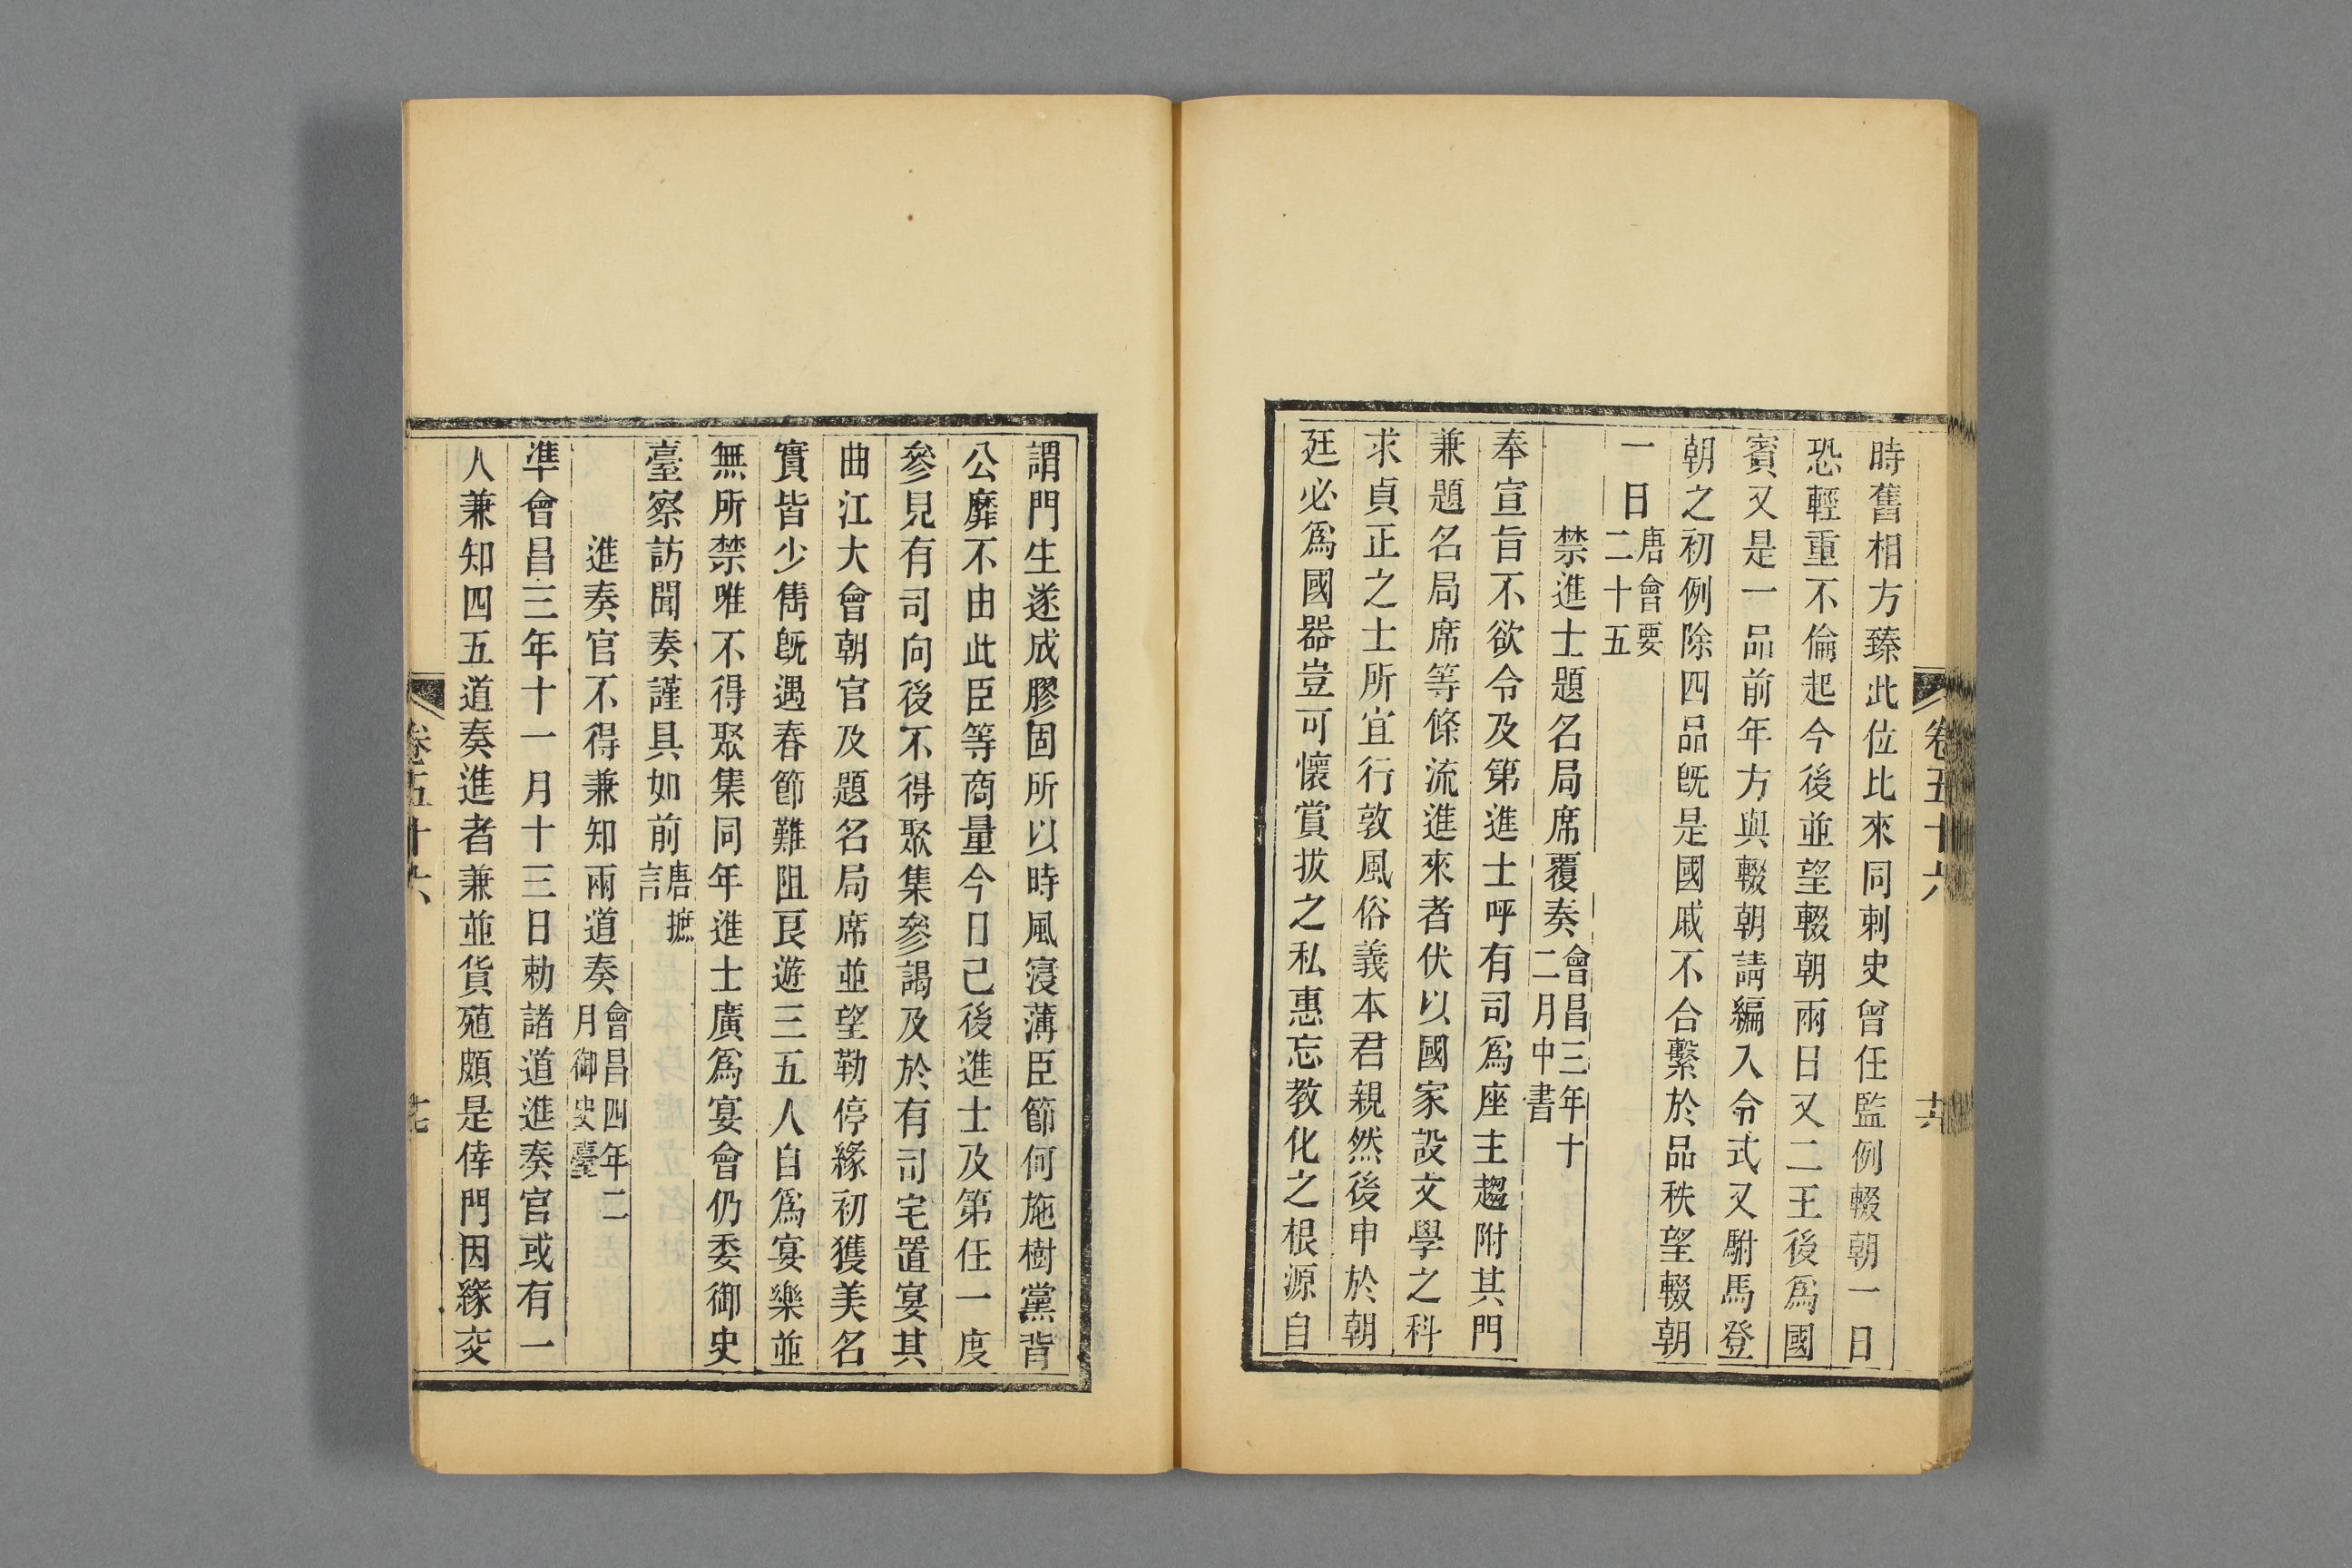 卷五十六
時舊相方臻此位比來同刺史曾任監例輟朝一日
恐輕重不倫起今後並望輟朝兩日又二王後爲國
賓又是一品前年方與輟朝請編入令式又駙馬登
朝之初例除四品旣是國戚不合繫於品秩望輟朝
一日唐會要
二十五
禁進士題名局席覆奏會昌三年十
二月中書
奉宣旨不欲令及第進士呼有司爲座主趨附其門
兼題名局席等條流進來者伏以國家設文學之科
求貞正之士所宜行敦風俗義本君親然後申於朝
廷必爲國器豈可懷賞拔之私惠忘教化之根源自
謂門生遂成膠固所以時風寖薄臣節何施樹黨背
公靡不由此臣等商量今日已後進士及第任一度
參見有司向後不得聚集參謁及於有司宅置宴其
曲江大會朝官及題名局席並望勒停緣初獲美名
實皆少雋旣遇春節難阻良遊三五人自爲宴樂並
無所禁唯不得聚集同年進士廣爲宴會仍委御史
臺察訪聞奏謹具如前唐摭
言
進奏官不得兼知兩道奏會昌四年二
月御史臺
準會昌三年十一月十三日勅諸道進奏官或有一
人兼知四五道奏進者兼並貨殖頗是倖門因緣交
卷五十六